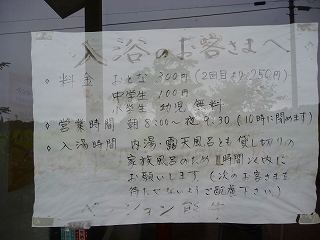 入浴のお客さまへ
◇ 料金 おとな 300円(2回目より250円)
中学生 100円
小学生 幼児 無料
◇ 営業時間 朝8:00~夜9:30(10時に閉めます)
◇ 入湯時間 内湯・露天風呂とも貸し切りの
家族風呂のため1時間以内に
お願いします(次のお客さまを
待たせないようご配慮下さい)